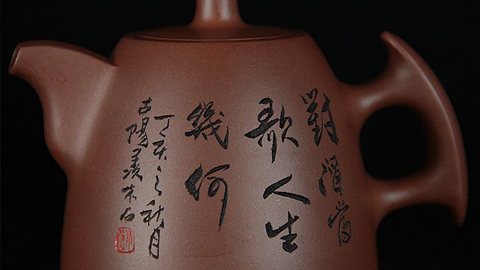 對酒當
歌人生
幾何
丁亥之秋月
古陽羨木石